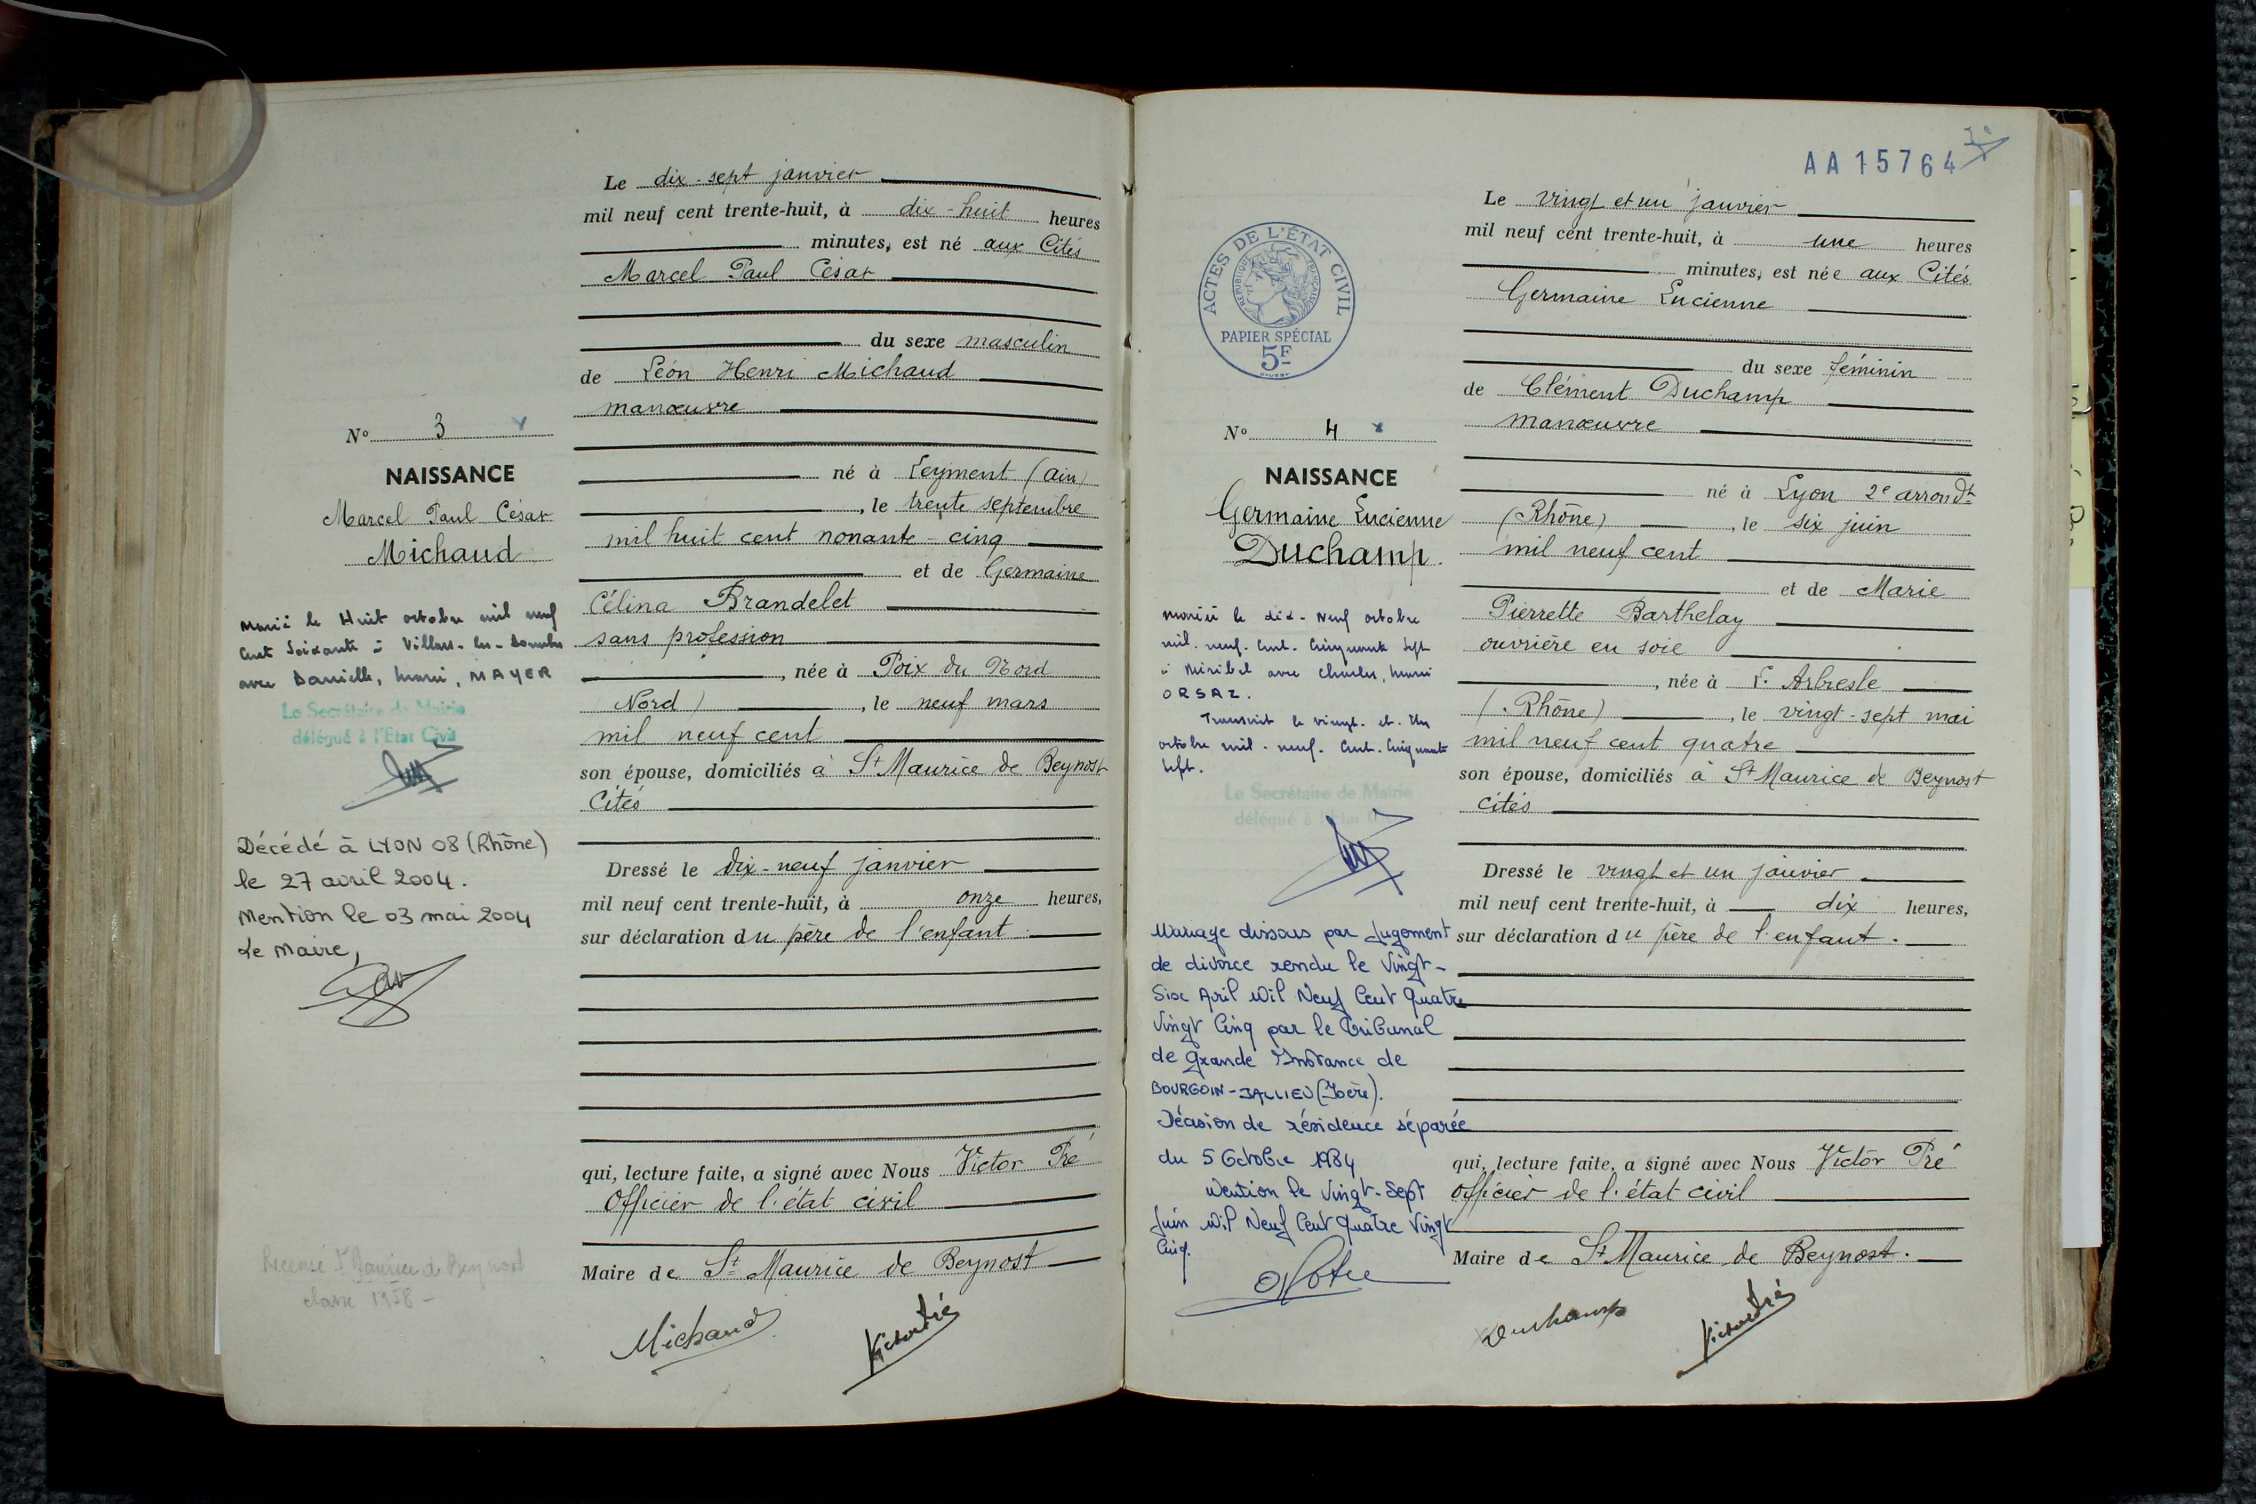 Le dix-sept janvier
mil neuf cent trente-huit, à dix-huit heures
minutes, est né aux Cités
Marcel Paul César
du sexe masculin
de Léon Henri Michaud
manœuvre
né à Leyment (Ain)
, le trente septembre
mil huit cent nonante-cinq
et de Germaine
Célina Brandelet
sans profession
, née à Poix du Nord
Nord) , le neuf mars
mil neuf cent
son épouse, domiciliés à St Maurice de Beynost
Cités
Dressé le dix-neuf janvier
mil neuf cent trente-huit, à onze heures,
sur déclaration du père de l'enfant
qui, lecture faite, a signé avec Nous Victor Pré
Officier de l'état civil
Maire de St Maurice de Beynost
Michaud Victor Pré
N° 3
NAISSANCE
Marcel Paul César
Michaud
Marié le Huit octobre mil neuf
cent soixante à Villars-les-Dombes
avec Danielle, Marie, MAYER
Le Secrétaire de Mairie
délégué à l'Etat Civil
Décédé à LYON 08 (Rhône)
le 27 avril 2004.
Mention le 03 mai 2004
Le Maire,
Recensé St Maurice de Beynost
classe 1958 -
AA 15764
Le vingt et un janvier
mil neuf cent trente-huit, à une heures
minutes, est née aux Cités
Germaine Lucienne
du sexe féminin
de Clément Duchamp
manœuvre
né à Lyon 2e arrondt
(Rhône) , le six juin
mil neuf cent
et de Marie
Pierrette Barthelay
ouvrière en soie
, née à L'Arbresle
(Rhône) , le vingt-sept mai
mil neuf cent quatre
son épouse, domiciliés à St Maurice de Beynost
cités
Dressé le vingt et un janvier
mil neuf cent trente-huit, à dix heures,
sur déclaration du père de l'enfant.
qui, lecture faite, a signé avec Nous Victor Pré
officier de l'état civil
Maire de St Maurice de Beynost.
Duchamp Victor Pré
ACTES DE L'ÉTAT CIVIL
RÉPUBLIQUE FRANÇAISE
PAPIER SPÉCIAL
5F
N° 4
NAISSANCE
Germaine Lucienne
Duchamp.
Mariée le dix-neuf octobre
mil-neuf-cent-cinquante sept
à Miribel avec Charles, Henri
ORSAZ.
Transcrit le vingt-et-un
octobre mil-neuf-cent-cinquante
sept.
Le Secrétaire de Mairie
délégué à l'Etat Civil
Mariage dissous par Jugement
de divorce rendu le Vingt-
Six Avril Mil Neuf Cent Quatre
Vingt Cinq par le Tribunal
de Grande Instance de
BOURGOIN-JALLIEU (Isère).
Décision de résidence séparée
du 5 Octobre 1984
Mention le Vingt-Sept
Juin Mil Neuf Cent Quatre Vingt
Cinq.